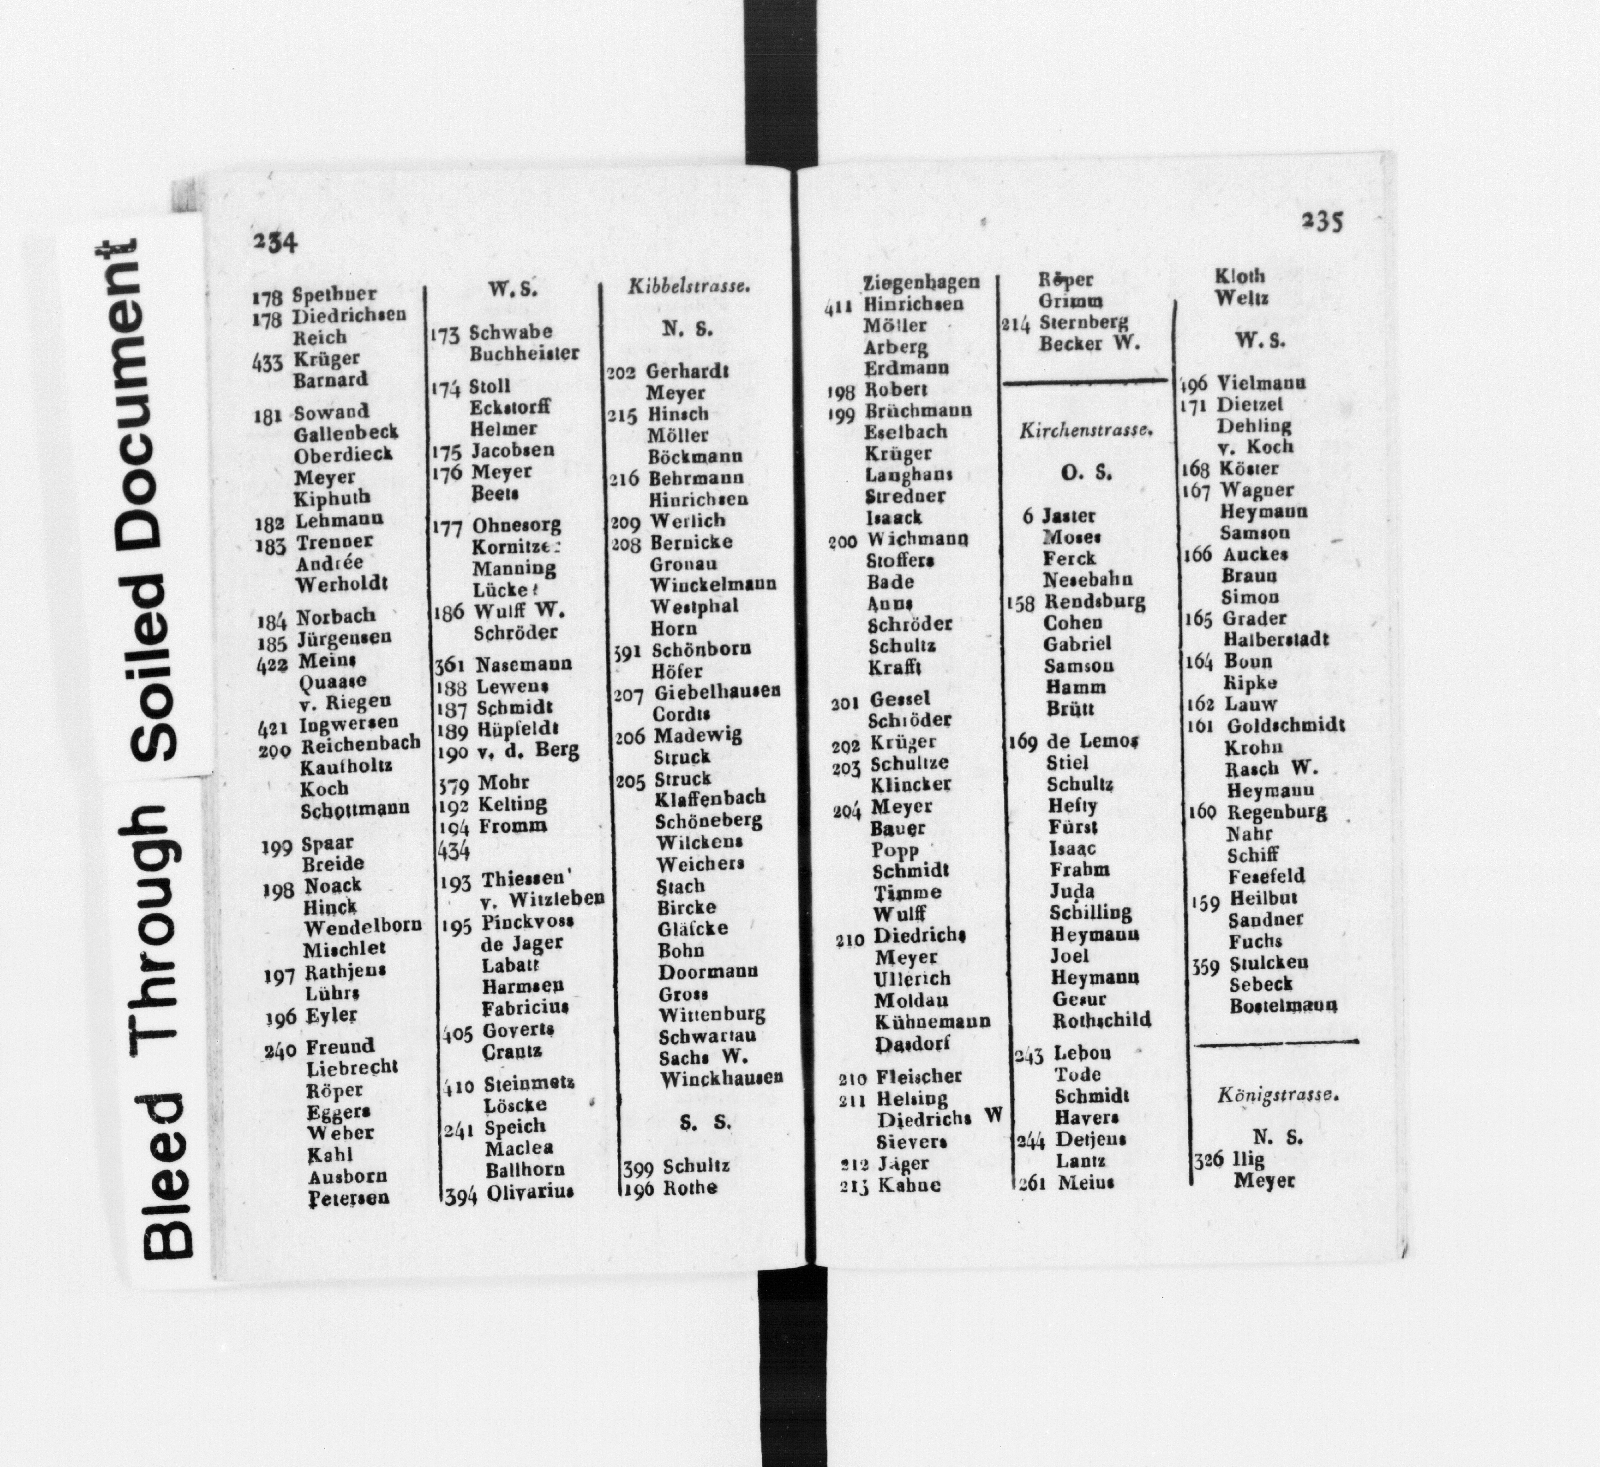 Bleed Through Soiled Document
234
178 Spethner
178 Diedrichsen
Reich
433 Krüger
Barnard
181 Sowand
Gallenbeck
Oberdieck
Meyer
Kiphuth
182 Lehmann
183 Trenner
Andrée
Werholdt
184 Norbach
185 Jürgensen
422 Meins
Quaase
v. Riegen
421 Ingwersen
200 Reichenbach
Kaufholtz
Koch
Schottmann
199 Spaar
Breide
198 Noack
Hinck
Wendelborn
Mischlet
197 Rathjens
Lührs
196 Eyler
240 Freund
Liebrecht
Röper
Eggers
Weber
Kahl
Ausborn
Petersen
W. S.
173 Schwabe
Buchheister
174 Stoll
Eckstorff
Helmer
175 Jacobsen
176 Meyer
Beets
177 Ohnesorg
Kornitzer
Manning
Lücker
186 Wulff W.
Schröder
361 Nasemann
188 Lewens
187 Schmidt
189 Hüpfeldt
190 v. d. Berg
379 Mohr
192 Kelting
194 Fromm
434
193 Thiessen
v. Witzleben
195 Pinckvoss
de Jager
Labatt
Harmsen
Fabricius
405 Goverts
Crantz
410 Steinmetz
Löscke
241 Speich
Maclea
Ballhorn
394 Olivarius
Kibbelstrasse.
N. S.
202 Gerhardt
Meyer
215 Hinsch
Möller
Böckmann
216 Behrmann
Hinrichsen
209 Werlich
208 Bernicke
Gronau
Winckelmann
Westphal
Horn
391 Schönborn
Höfer
207 Giebelhausen
Cordts
206 Madewig
Struck
205 Struck
Klaffenbach
Schöneberg
Wilckens
Weichers
Stach
Bircke
Gläfcke
Bohn
Doormann
Gross
Wittenburg
Schwartau
Sachs W.
Winckhausen
S. S.
399 Schultz
196 Rothe
235
Ziegenhagen
411 Hinrichsen
Möller
Arberg
Erdmann
198 Robert
199 Brüchmann
Eselbach
Krüger
Langhans
Stredner
Isaack
200 Wichmann
Stoffers
Bade
Anns
Schröder
Schultz
Krafft
201 Gessel
Schröder
202 Krüger
203 Schultze
Klincker
204 Meyer
Bauer
Popp
Schmidt
Timme
Wulff
210 Diedrichs
Meyer
Ullerich
Moldau
Kühnemann
Dasdorf
210 Fleischer
211 Helsing
Diedrichs W
Sievers
212 Jäger
213 Kahne
Röper
Grimm
214 Sternberg
Becker W.
Kirchenstrasse.
O. S.
6 Jaster
Moses
Ferck
Nesebahn
158 Rendsburg
Cohen
Gabriel
Samson
Hamm
Brütt
169 de Lemos
Stiel
Schultz
Hefty
Fürst
Isaac
Frahm
Juda
Schilling
Heymann
Joel
Heymann
Gesur
Rothschild
243 Lebon
Tode
Schmidt
Havers
244 Detjens
Lantz
261 Meius
Kloth
Weltz
W. S.
196 Vielmann
171 Dietzel
Dehling
v. Koch
168 Köster
167 Wagner
Heymann
Samson
166 Auckes
Braun
Simon
165 Grader
Halberstadt
164 Bonn
Ripke
162 Lauw
161 Goldschmidt
Krohn
Rasch W.
Heymann
160 Regenburg
Nahr
Schiff
Fesefeld
159 Heilbut
Sandner
Fuchs
359 Stulcken
Sebeck
Bostelmann
Königstrasse.
N. S.
326 Ilig
Meyer